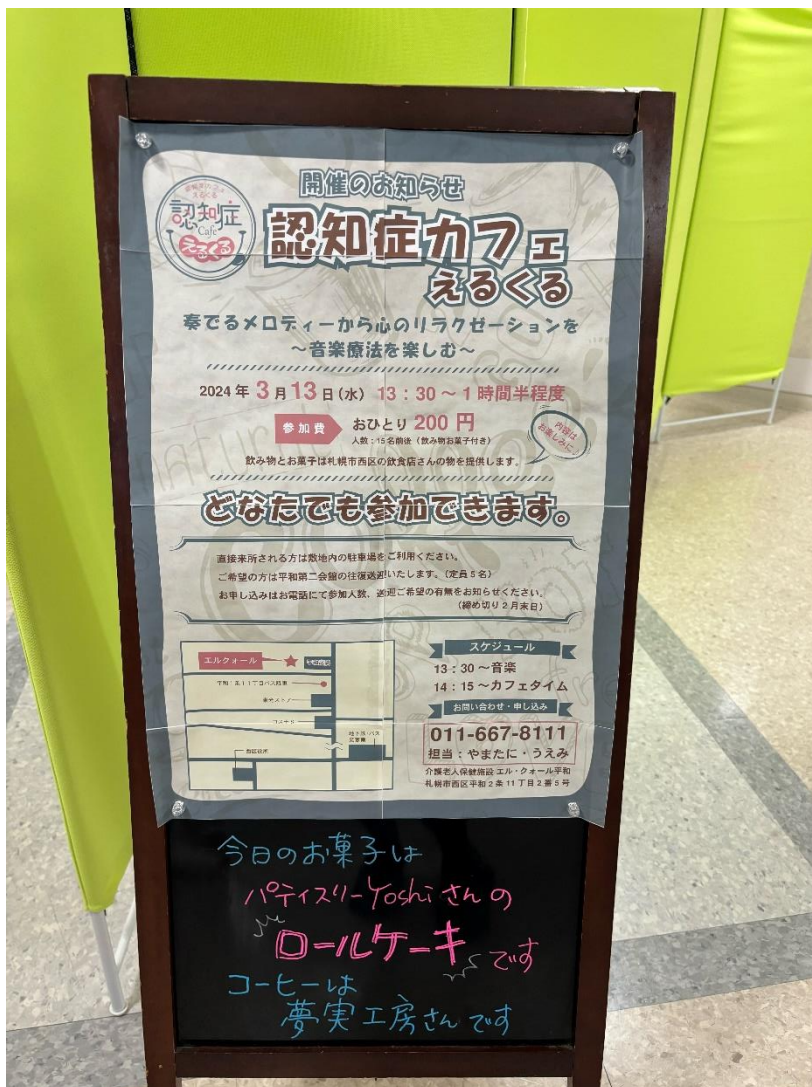 認知症
Cafe
えるくる
開催のお知らせ
認知症カフェ
えるくる
奏でるメロディーから心のリラクゼーションを
～音楽療法を楽しむ～
2024年3月13日(水) 13：30～1時間半程度
参加費 おひとり200円
人数：15名前後（飲み物お菓子付き）
内容は
お楽しみに♪
飲み物とお菓子は札幌市西区の飲食店さんの物を提供します。
どなたでも参加できます。
直接来所される方は敷地内の駐車場をご利用ください。
ご希望の方は平和第二会館の往復送迎いたします。(定員5名)
お申し込みはお電話にて参加人数、送迎ご希望の有無をお知らせください。
(締め切り2月末日)
エルクォール
スケジュール
13：30～音楽
14：15～カフェタイム
お問い合わせ・申し込み
011-667-8111
担当：やまたに・うえみ
介護老人保健施設エル・クォール平和
札幌市西区平和2条11丁目2番5号
今日のお菓子は
パティスリーYoshiさんの
ロールケーキです
コーヒーは
夢実工房さんです